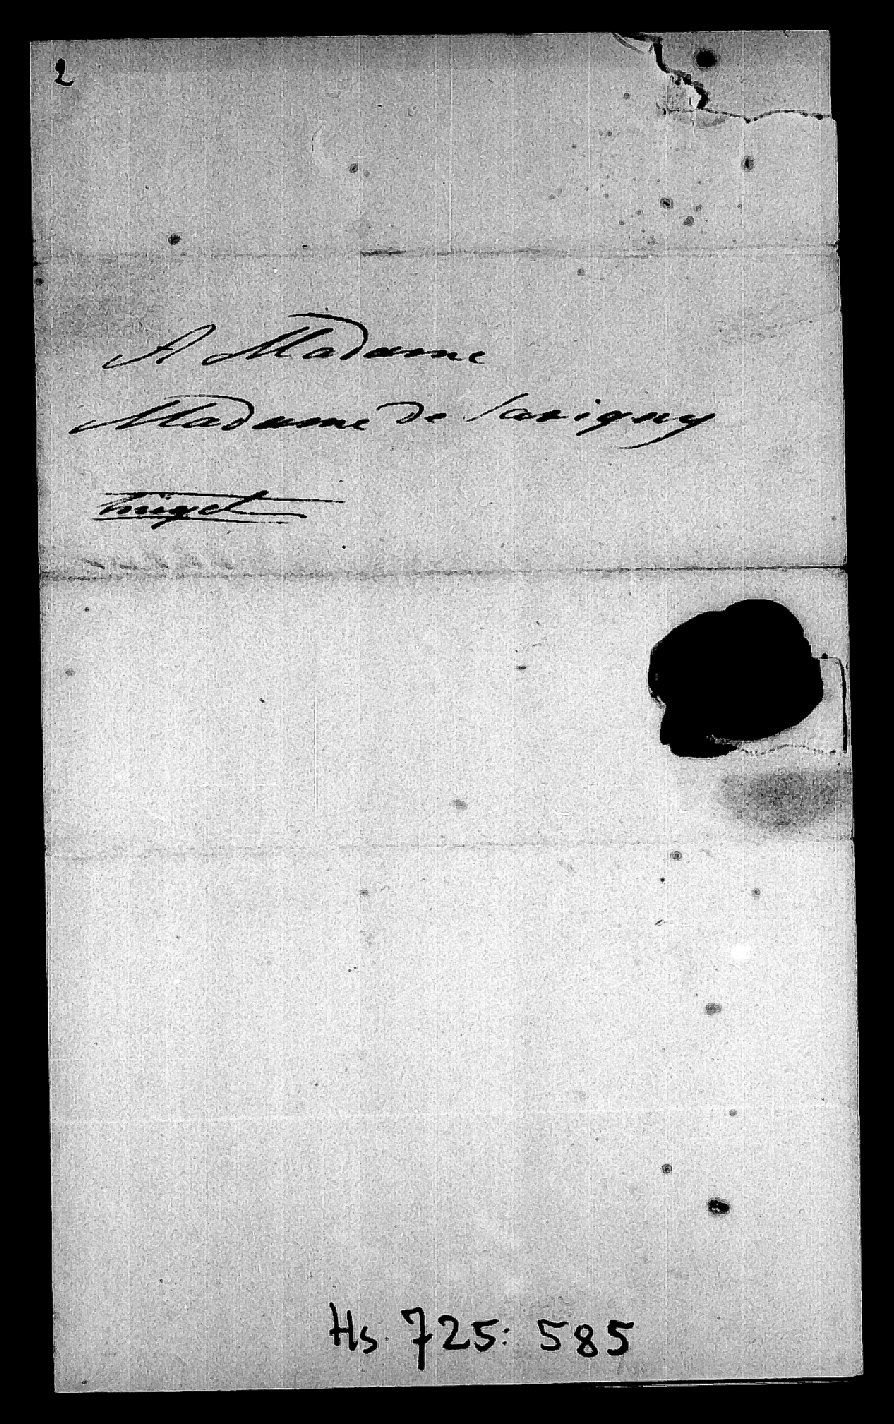 2
A Madame
Madame de Savigny
Hs. 725: 585